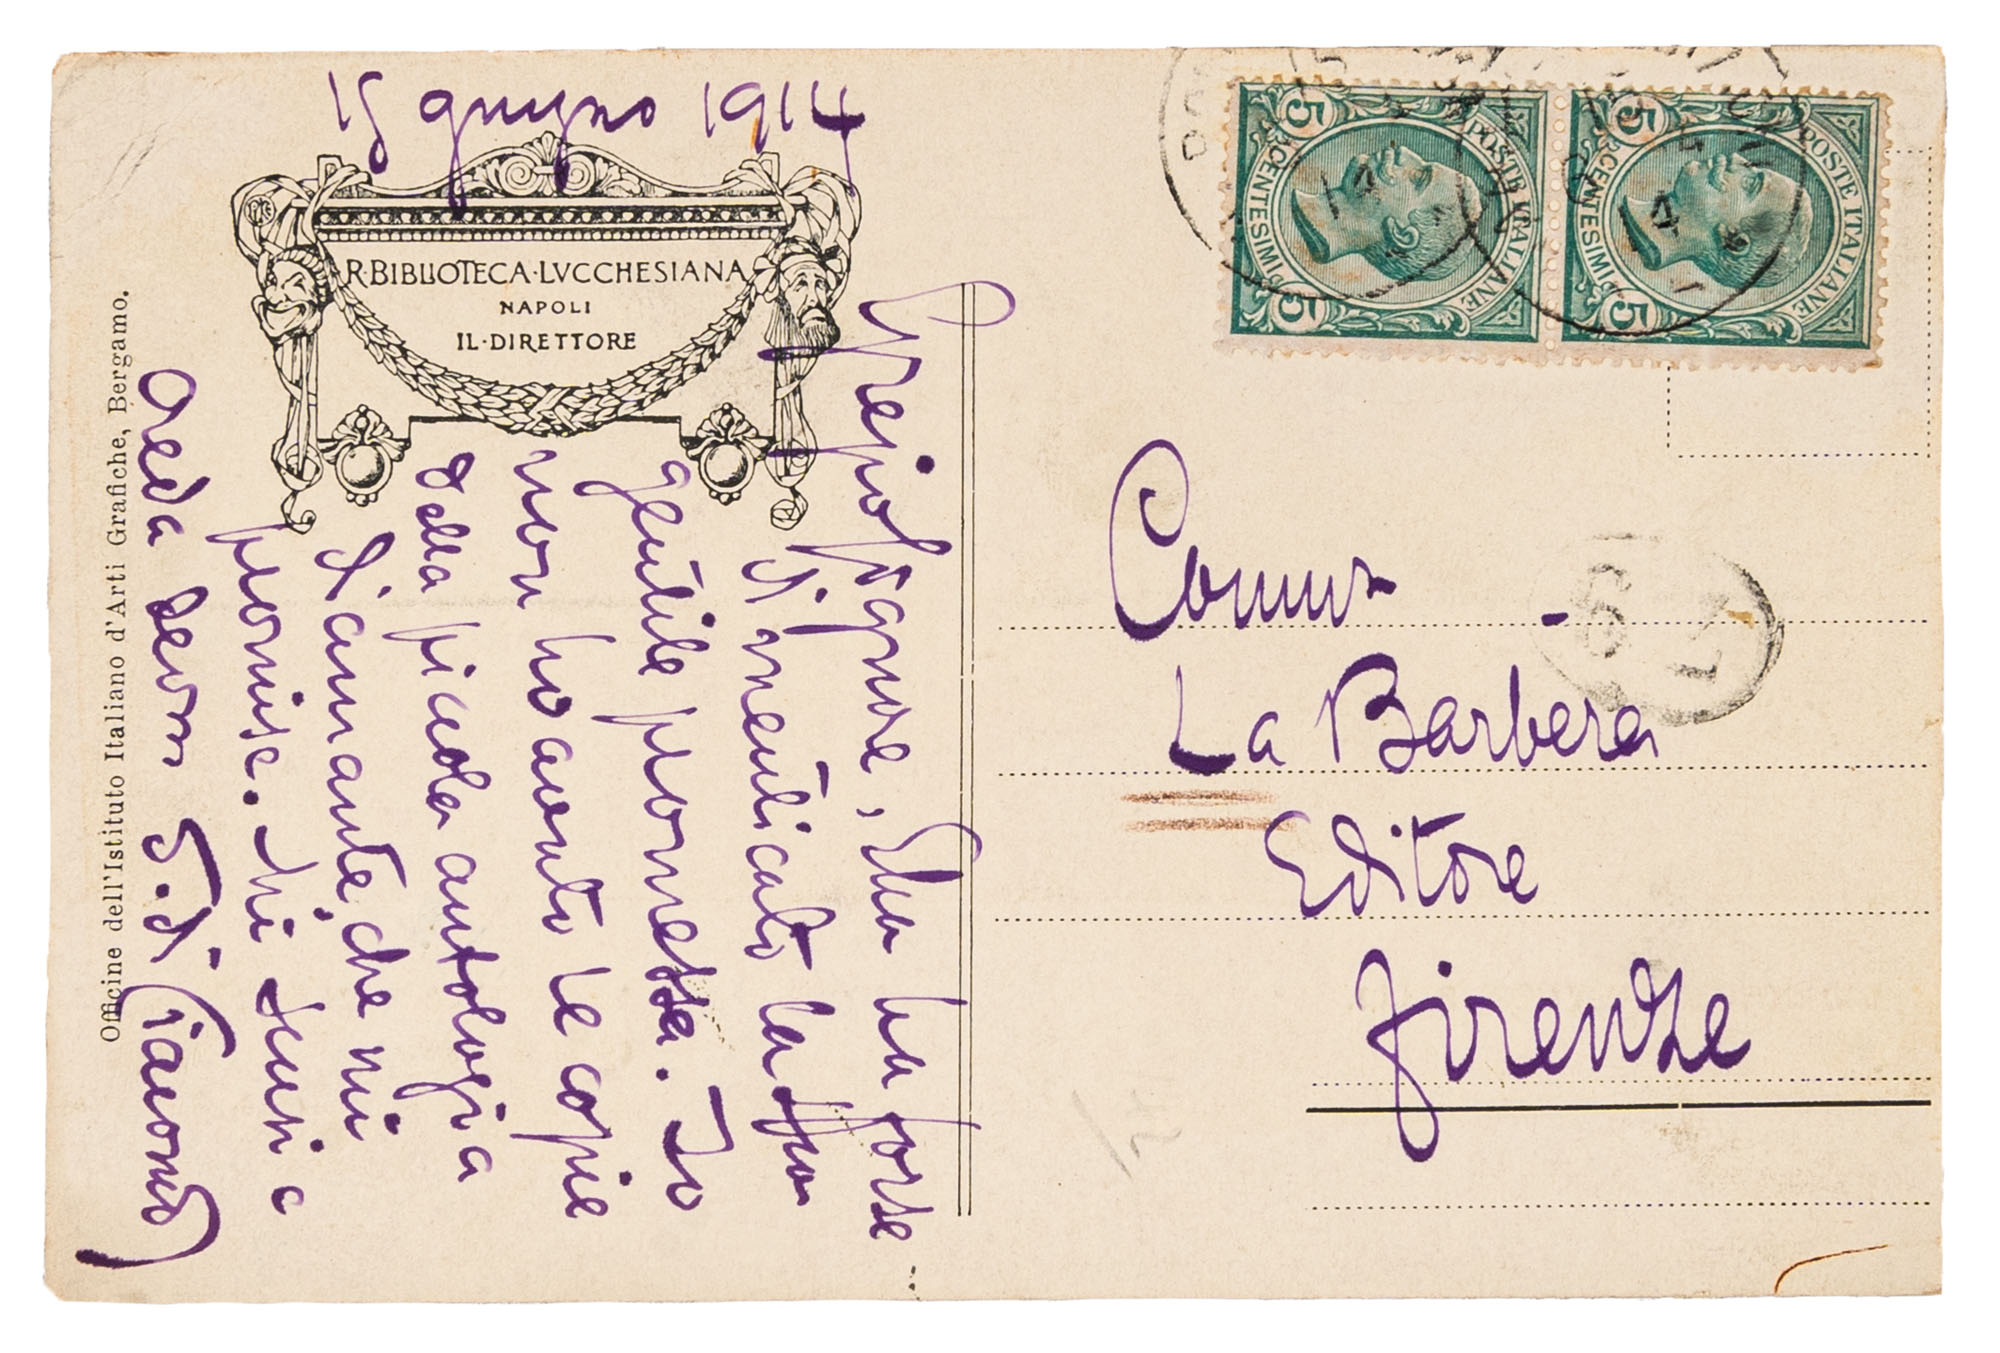 R. BIBLIOTECA · LVCCHESIANA
NAPOLI
IL · DIRETTORE
15 giugno 1914
Egregio Signore, Ella ha forse
dimenticato la sua
gentile promessa. Io
non ho avuto le copie
della piccola antologia
d'annunzio che mi
promise. Mi scusi e
creda devoto S. di Giacomo
Officine dell'Istituto Italiano d'Arti Grafiche, Bergamo.
POSTE ITALIANE
CENTESIMI
5
5
POSTE ITALIANE
CENTESIMI
5
5
Comm.
La Barbera
Editore
Firenze